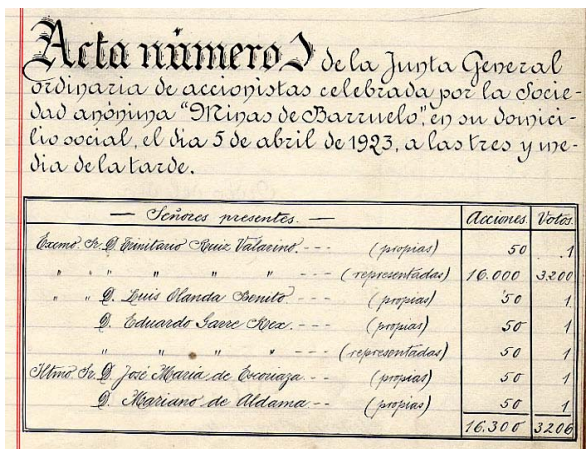 Acta número 1 de la Junta General
ordinaria de accionistas celebrada por la Socie-
dad anónima "Minas de Barruelo", en su domici-
lio social, el dia 5 de abril de 1923, a las tres y me-
dia de la tarde.
— Señores presentes. — Acciones Votos.
Exmo Sr. D. Trinitario Ruiz Valarino. - - - (propias) 50 1
" " " " " (representadas) 16.000 3.200
" " D. Luis Olanda Benito - - - (propias) 50 1
D. Eduardo Garre Rex. - - - (propias) 50 1
" " " - - - (representadas) 50 1
Iltmo Sr. D. José Maria de Escoriaza - - - (propias) 50 1
D. Mariano de Aldama - - (propias) 50 1
16.300 3206